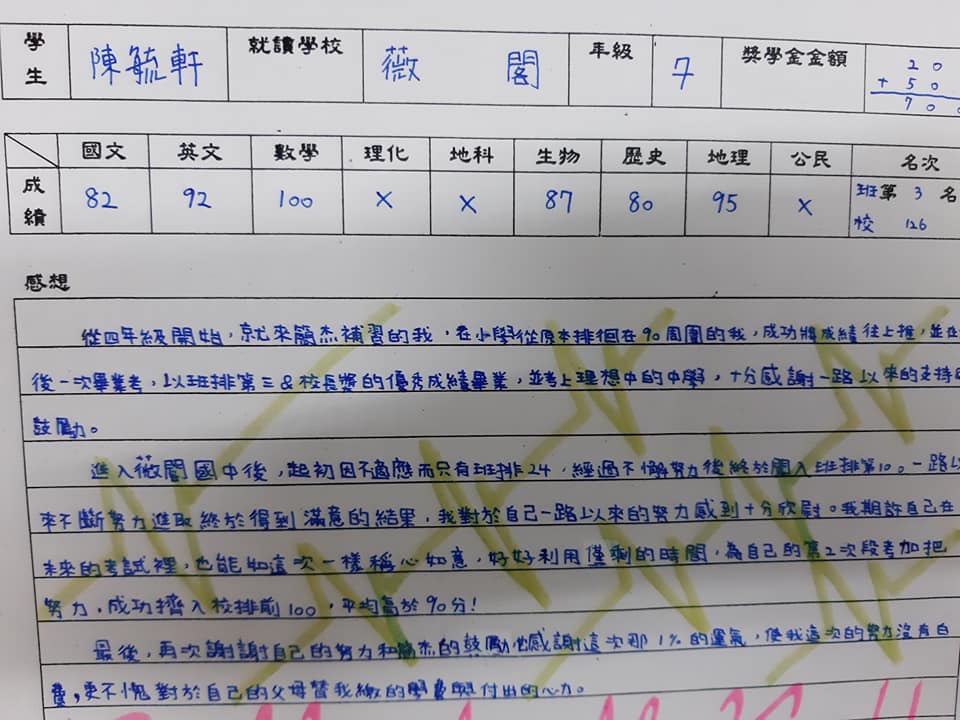 學生 陳毓軒 就讀學校 薇閣 年級 7 獎學金金額 20
+ 50
700
國文 英文 數學 理化 地科 生物 歷史 地理 公民 名次
成績 82 92 100 X X 87 80 95 X 班第 3 名
校 126
感想
從四年級開始,就來簡杰補習的我,在小學從原本排徊在90周圍的我,成功將成績往上推,並在
後一次畢業考,以班排第三&校長獎的優秀成績畢業,並考上理想中的中學,十分感謝一路以來的支持
鼓勵。
進入薇閣國中後,起初因不適應而只有班排24,經過不懈努力後終於闖入班排第10。一路以
來不斷努力進取終於得到滿意的結果,我對於自己一路以來的努力感到十分欣慰。我期許自己在
未來的考試裡,也能如這次一樣稱心如意,好好利用僅剩的時間,為自己的第2次段考加把
努力,成功擠入校排前100,平均高於90分!
最後,再次謝謝自己的努力和簡杰的鼓勵也感謝這次那1%的運氣,使我這次的努力沒有白
費,更不愧對於自己的父母替我繳的學費與付出的心力。